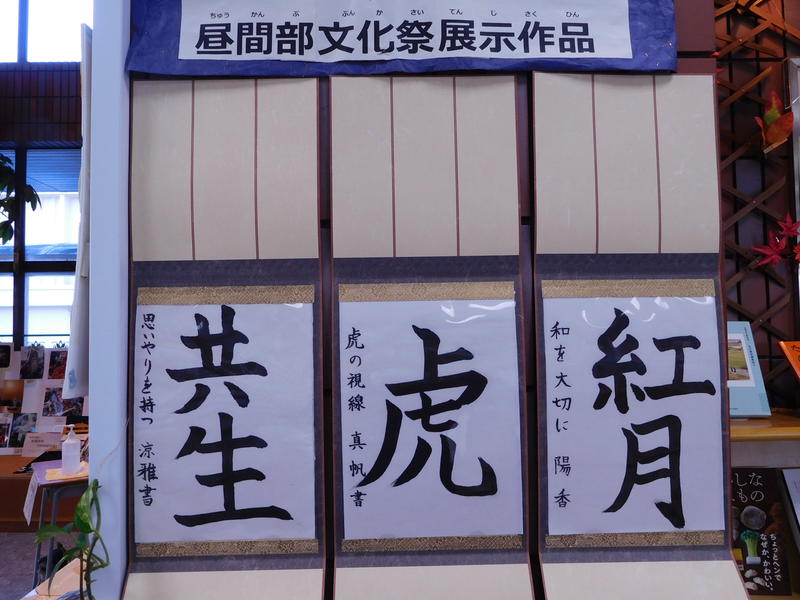 ちゅうかんぶぶんかさいてんじさくひん
昼間部文化祭展示作品
紅月
和を大切に 陽香
虎
虎の視線 真帆書
共生
思いやりを持つ 涼雅書
ちょっとヘンで
なぜか、かわいい。